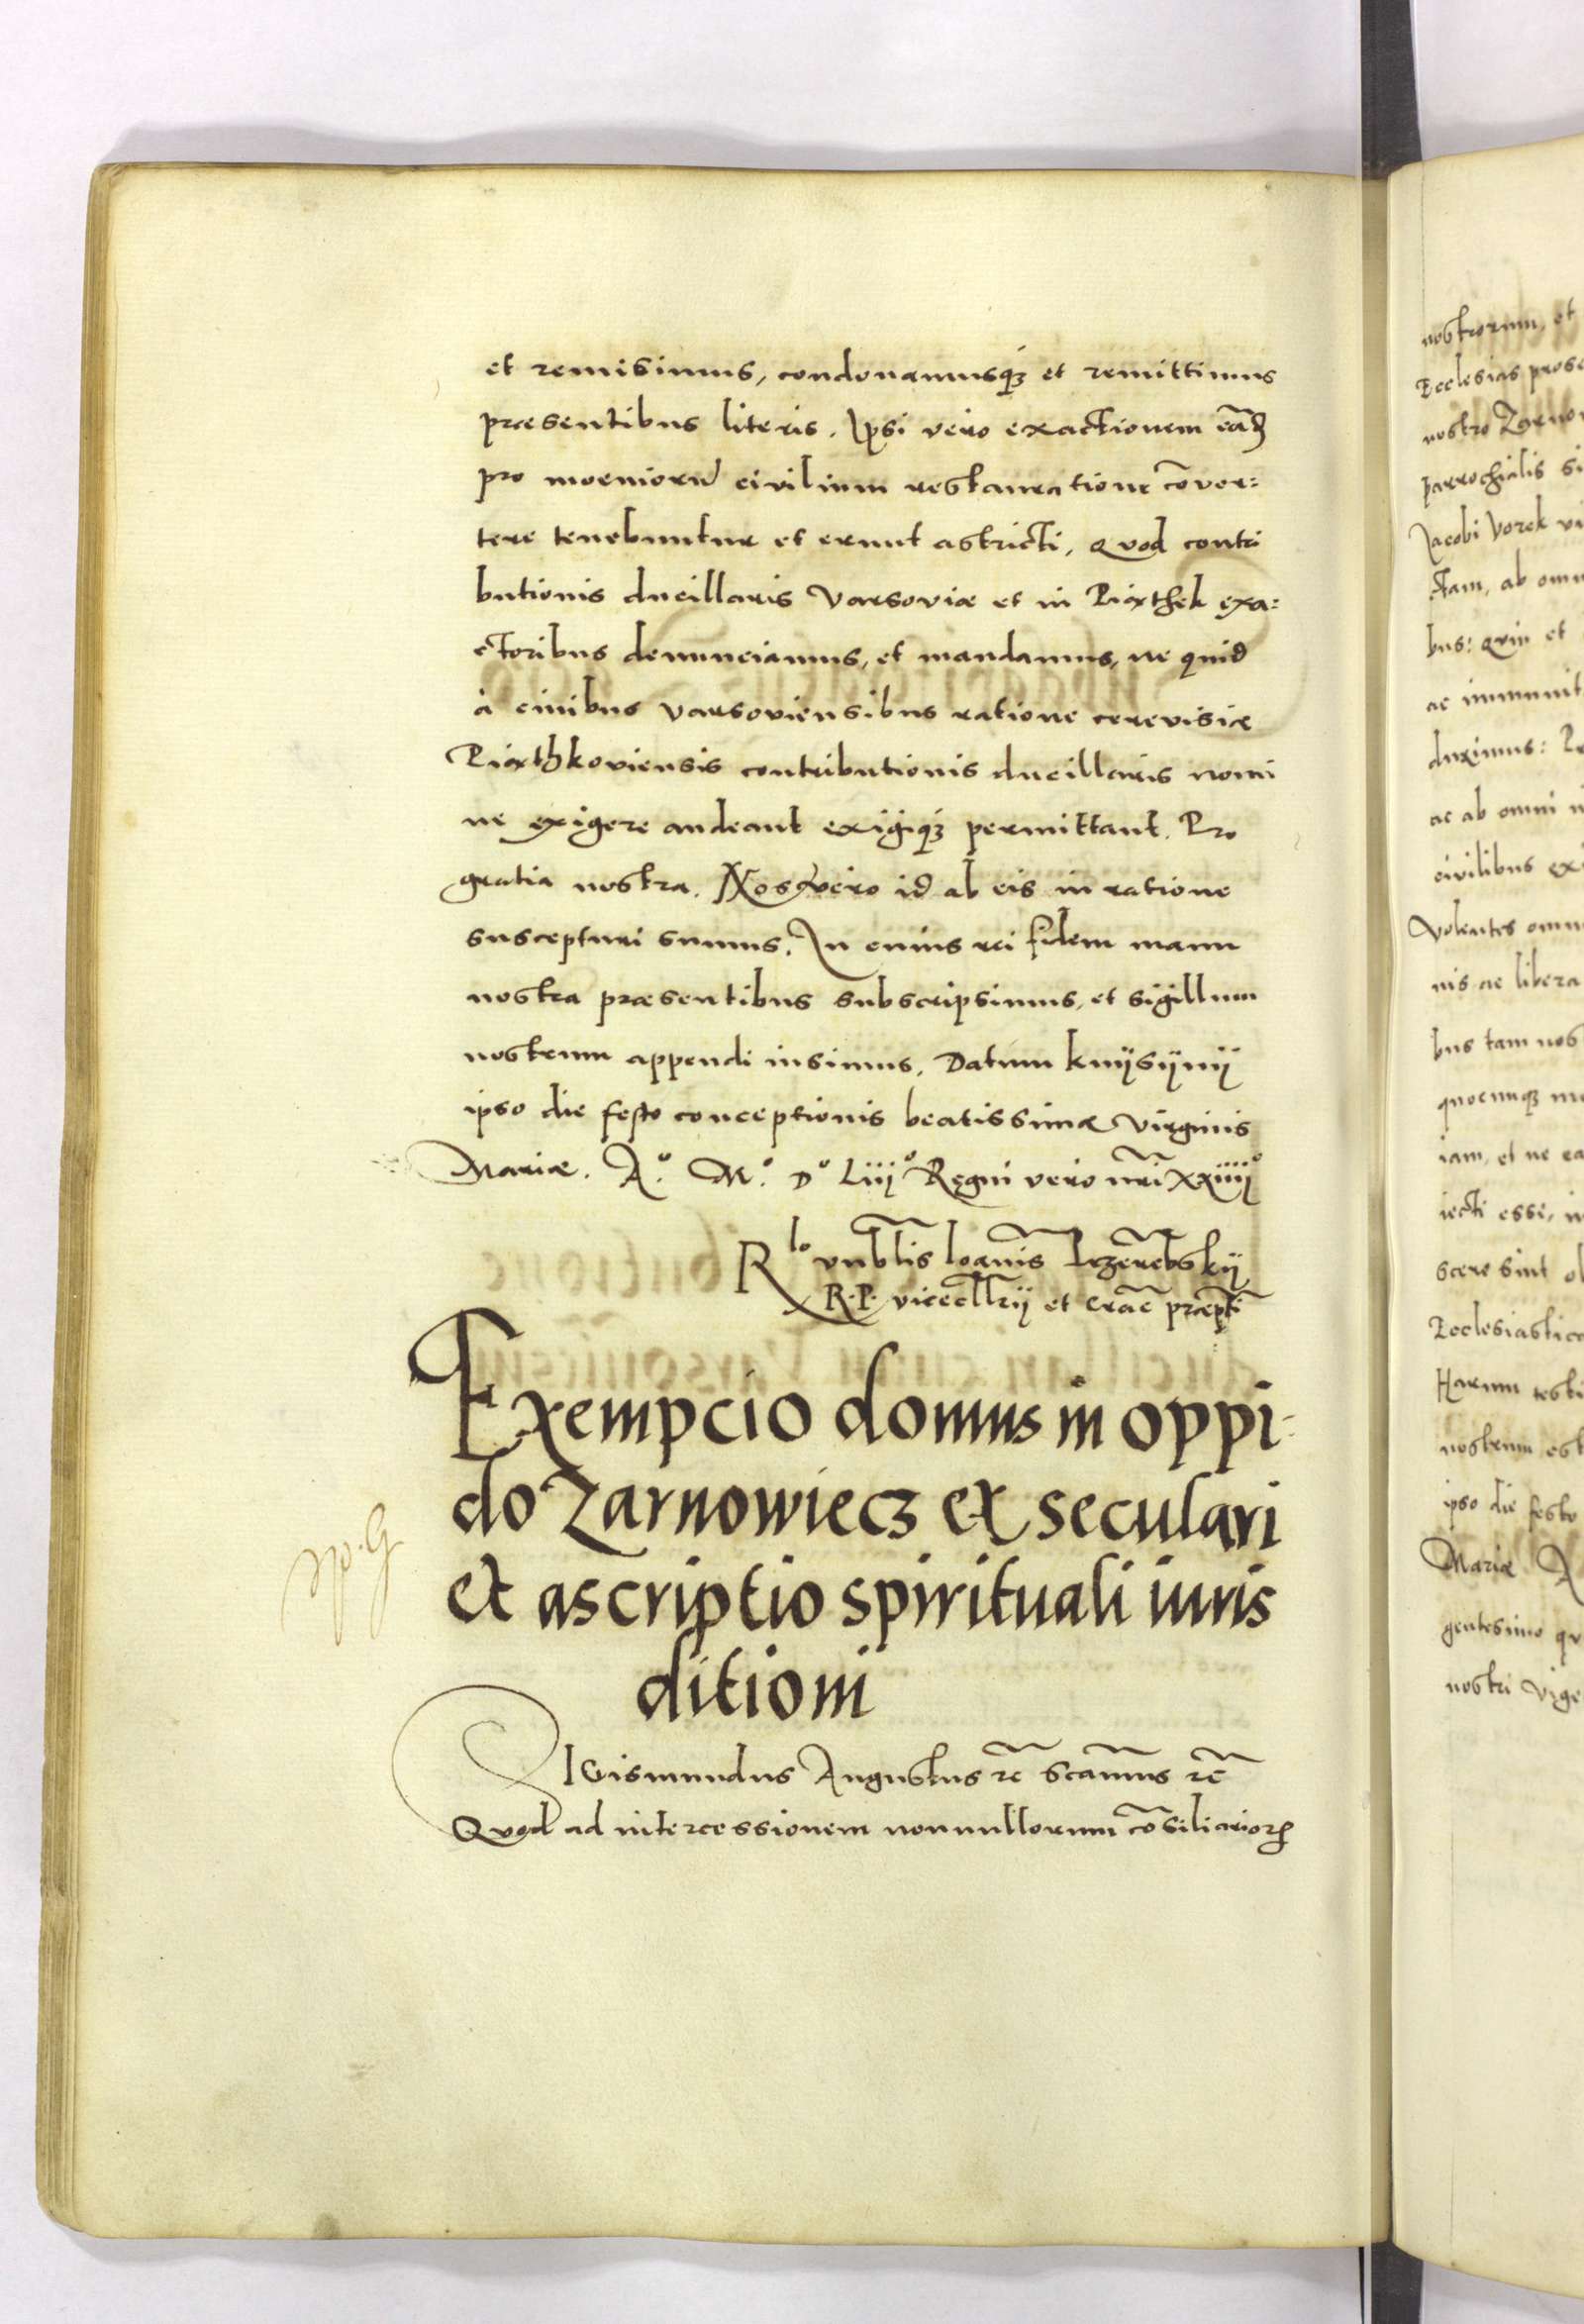 et remisimus, condonamusq; et remittimus
præsentibus literis. Ipsi vero exactionem eād
pro moeniorū civilium restauratione cōver=
tere tenebuntur et erunt astricti, Quod contri
butionis ducillaris Varsoviæ et in Piathek exa=
ctoribus denunciamus, et mandamus, ne quid
à civibus varsoviensibus ratione cerevisiæ
Piathkoviensis contributionis ducillaris nomi
ne exigere audeant exigiq; permittant. Pro
gratia nostra. Nos vero id ab eis in ratione
suscepturi sumus. In cuius rei fidem manu
nostra præsentibus subscripsimus, et sigillum
nostrum appendi iusimus, Datum knijsijnij
ipso die festo conceptionis beatissimæ virginis
Mariæ. A.º M.º Dº Liijº Regni vero nrĩ xxiiijº
Rlo vnblis Ioannis Przerebskij
R.P. vicecllrij et Crac præpti
Exempcio domus in oppi-
do Zarnowiecz ex seculari
et ascriptio spirituali iuris
ditioni
SIGismundus Augustus rc̃ Scamus rc̃
Quod ad intercessionem nonnullorum cōsiliarioꝝ
nostrorum, et
Ecclesias
nostro
parrochialis si
Jacobi Vorek vi
ctam, ab
bus: qvin et
ac
duximus:
ac ab omni
civilibus
Volentes
nis ac libera
bus tam nos
quocunq;
iam, et ne ea
iecti esse,
scere sint
Ecclesiastica
Harum testi
nostrum est
ipso die festo
Mariæ A
gentesimo qv
nostri Vige